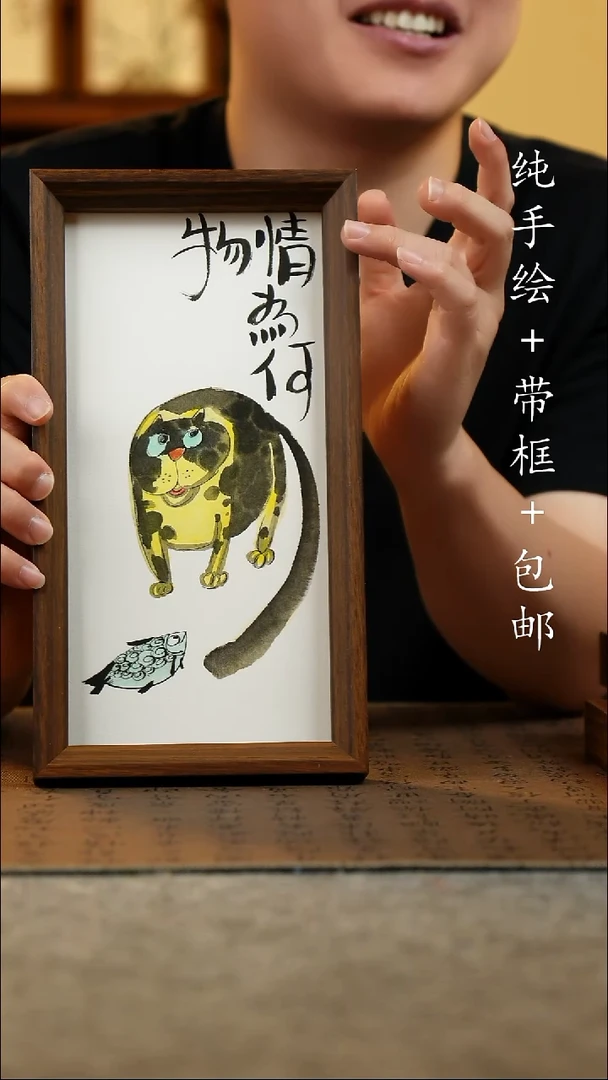 情為何
物
纯手绘+带框+包邮